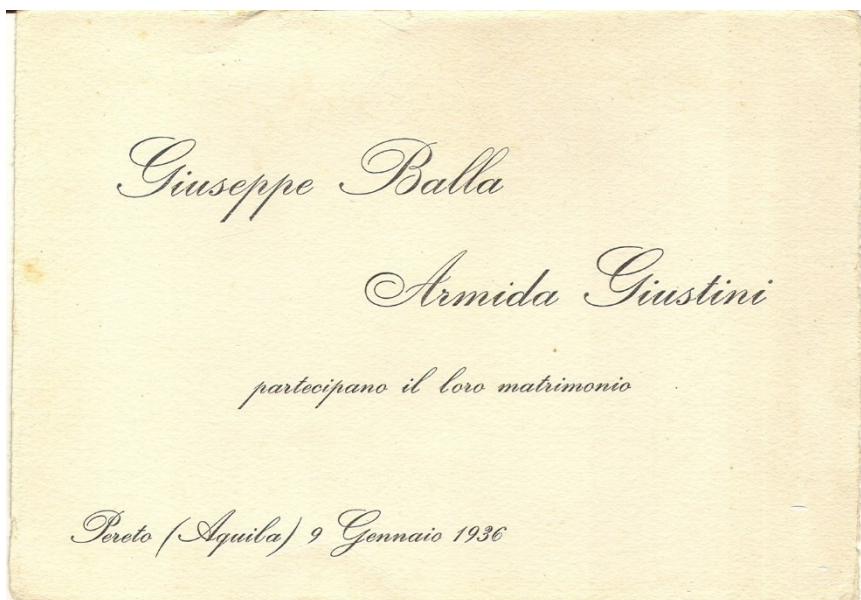 Giuseppe Balla
Armida Giustini
partecipano il loro matrimonio
Pereto (Aquila) 9 Gennaio 1936